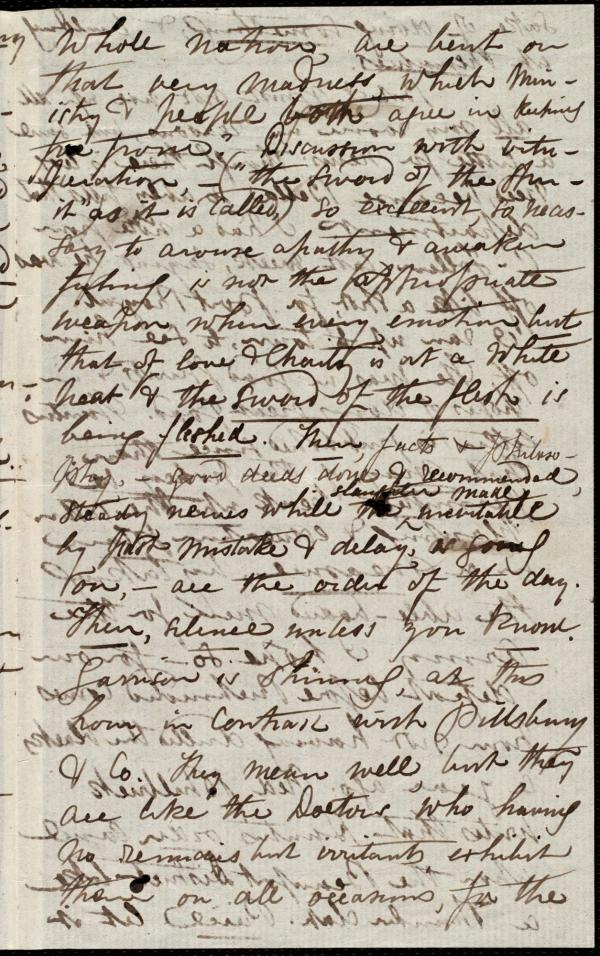 Whole nation, are bent on
that very madness, which Min-
istry & people both agree in keeping
free from." Discussion with vitu-
peration, — ("the Sword of the Spir-
it" as it is called,) so excellent, so neces-
sary to arouse apathy & awaken
feeling is not the appropriate
weapon when every emotion but
that of love & Charity is at a White
heat & the sword of the flesh is
being fleshed. Then, facts & philoso-
phy, — good deeds done & recommended,
steady nerves while the slaughter made inevitable
by past mistake & delay, is going
on, — are the order of the day.
Then, silence unless you know.
Garrison is shining, at this
hour, in contrast with Pillsbury
& Co. They mean well but they
are like the Doctors who having
no remedies but irritants, exhibit
them on all occasions, for the